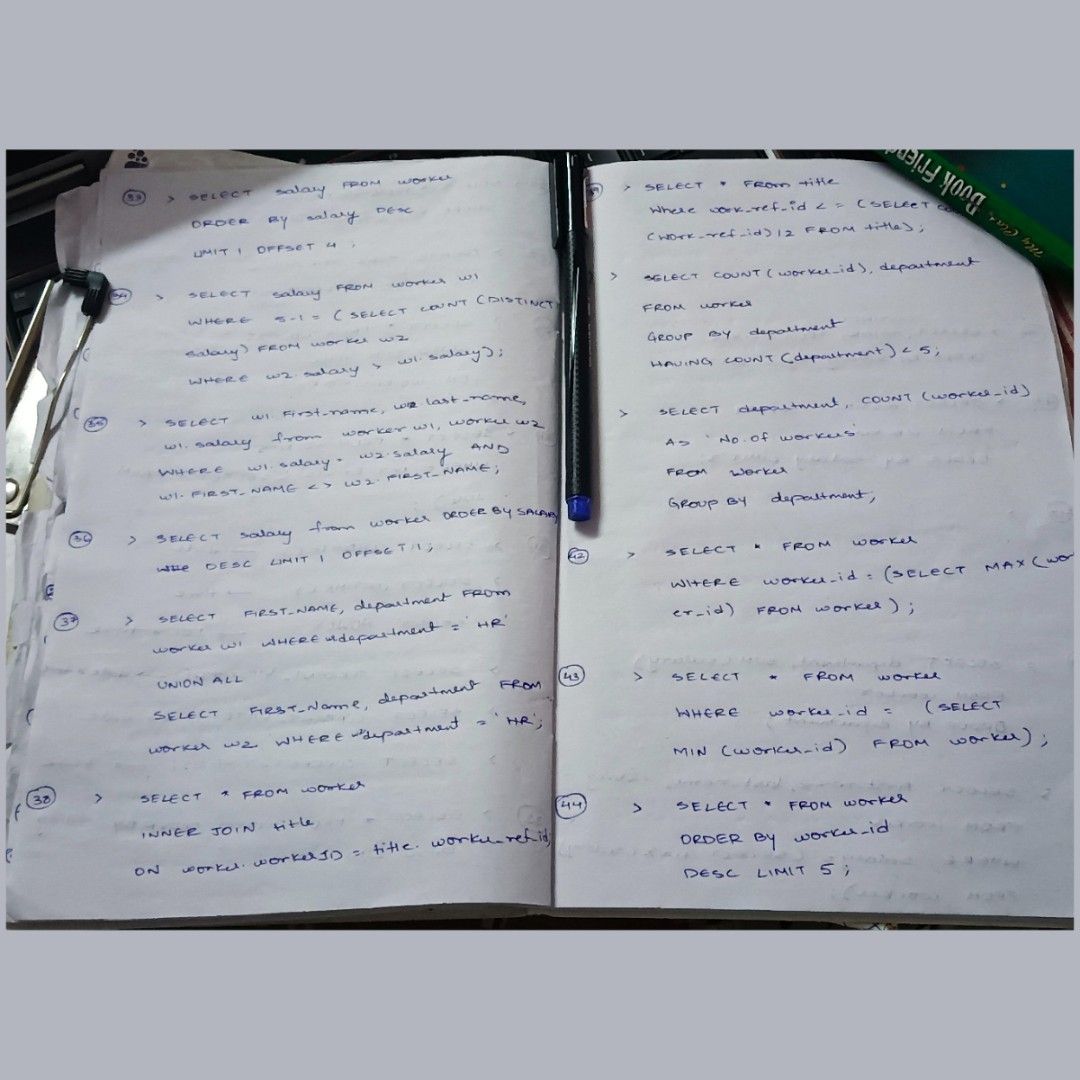 33 > SELECT salary FROM worker
ORDER BY salary DESC
LIMIT 1 OFFSET 4 ;
34 > SELECT salary FROM worker w1
WHERE 5-1 = ( SELECT COUNT (DISTINCT
salary) FROM worker w2
WHERE w2.salary > w1.salary);
35 > SELECT w1.First-name, w2 last-name,
w1.salary from worker w1, worker w2
WHERE w1.salary = w2.salary AND
w1.FIRST_NAME <> w2.FIRST_NAME;
36 > SELECT salary from worker ORDER BY SALARY
DESC LIMIT 1 OFFSET 1;
37 > SELECT FIRST_NAME, department FROM
worker w1 WHERE department = 'HR'
UNION ALL
SELECT FIRST_Name, department FROM
worker w2 WHERE department = 'HR';
38 > SELECT * FROM worker
INNER JOIN title
ON worker.workerID = title.worker_ref_id;
> SELECT * FROM title
Where work_ref_id <= (SELECT
(work_ref_id)/2 FROM title);
> SELECT COUNT (worker_id), department
FROM worker
GROUP BY department
HAVING COUNT (department) < 5;
> SELECT department, COUNT (worker_id)
AS 'No. of workers'
FROM worker
GROUP BY department;
42 > SELECT * FROM worker
WHERE worker_id = (SELECT MAX (wo
er_id) FROM worker);
43 > SELECT * FROM worker
WHERE worker_id = (SELECT
MIN (worker_id) FROM worker);
44 > SELECT * FROM worker
ORDER BY worker_id
DESC LIMIT 5;
Book Friend